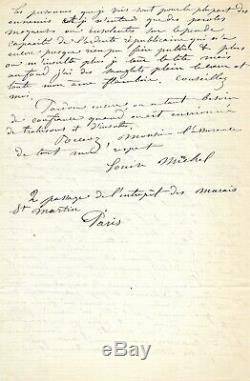 les personnes que je vois sont pour la plupart des
ennemis et je n'entends que des paroles
moqueuses ou insolentes sur le peu de
capacité de l'armée républicaine qui n'a
encore presque rien pu faire publier & plus
on m'insulte plus j'ai l'air bête mais
au fond j'ai des sanglots plein le cœur et
toute mon âme Conseillez
moi.
Pardon encore on a tant besoin
de confiance quand on est environné
de trahisons et d'insultes.
Recevez, Monsieur l'assurance
de tout mon respect
Louise Michel
2 passage de l'entrepôt des marais
St martin
Paris